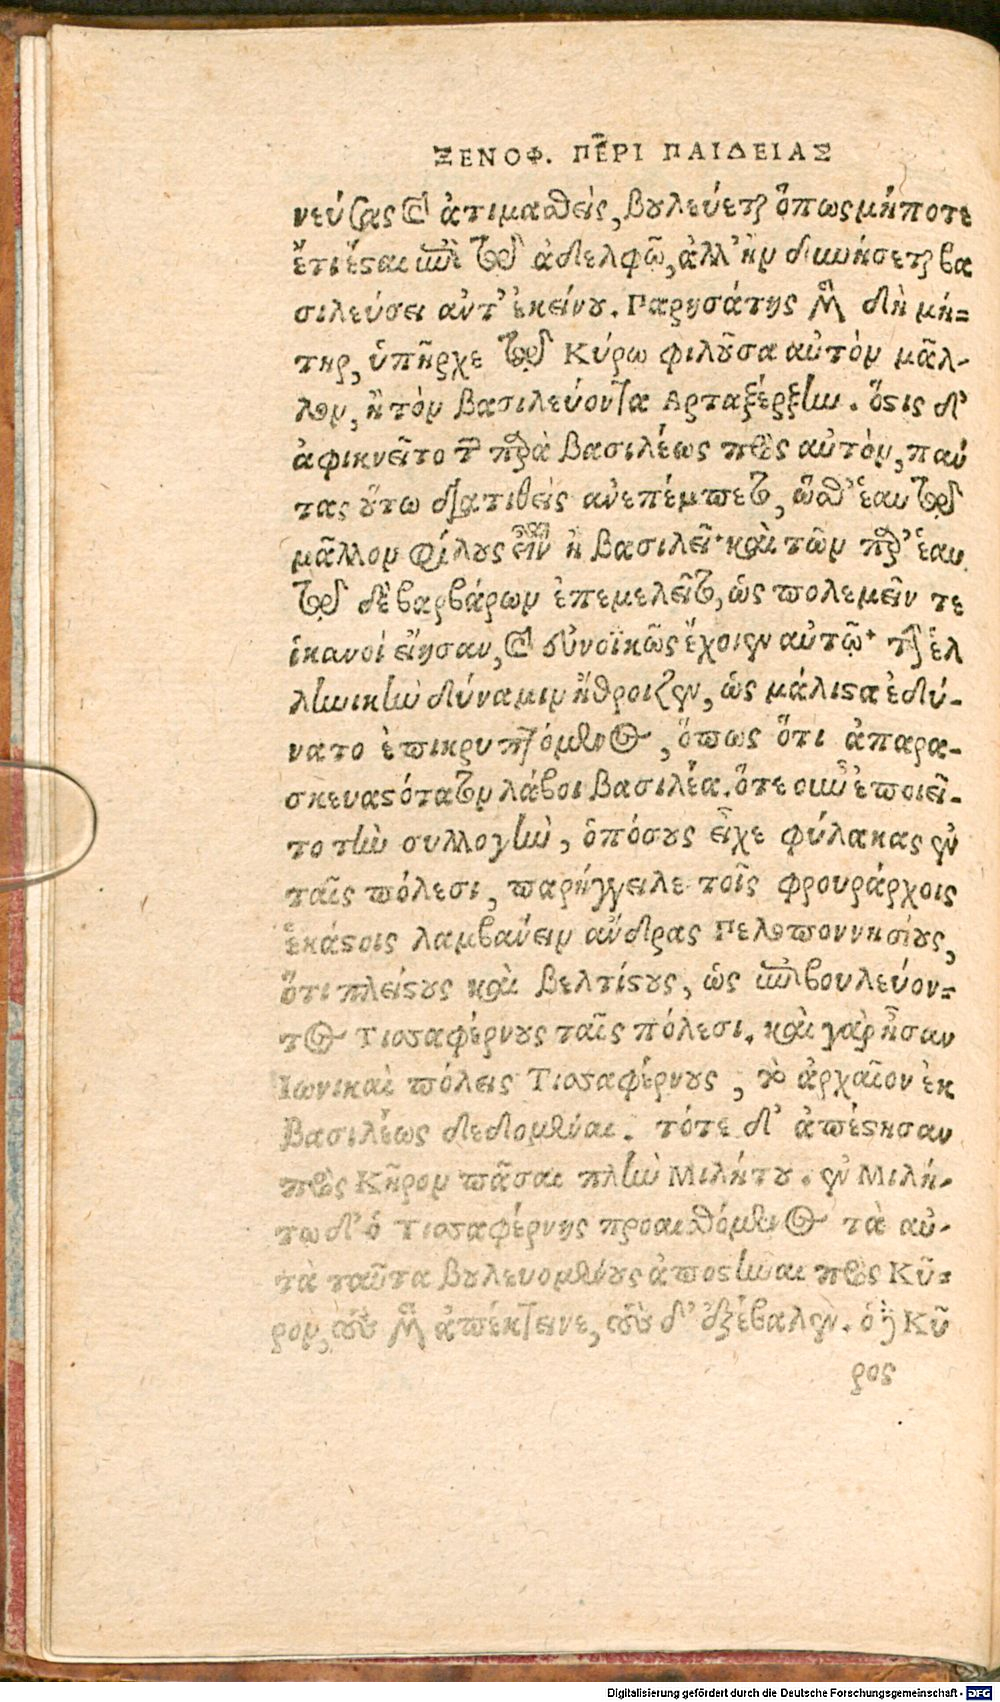 ΞΕΝΟΦ. ΠΕΡΙ ΠΑΙΔΕΙΑΣ
νεύσας καὶ ἀτιμασθεὶς, βουλεύεται ὅπως μήποτε
ἔτι ἔσται ἐπὶ τῷ ἀδελφῷ, ἀλλ' ἢν δυνήσεται βα
σιλεύσει ἀντ' ἐκείνου. Παρησάτης μὲν δὴ μή-
τηρ, ὑπῆρχε τῷ Κύρω φιλοῦσα αὐτὸν μᾶλ-
λον, ἢ τὸν βασιλεύοντα Αρταξέρξην. ὅστις δ'
ἀφικνεῖτο τῶν παρὰ βασιλέως πρὸς αὐτὸν, πάν
τας οὕτω διατιθεὶς ἀνεπέμπετο, ὥσθ' ἑαυτῷ
μᾶλλον φίλους εἶναι ἢ βασιλεῖ· καὶ τῶν παρ' ἑαυ
τῷ δὲ βαρβάρων ἐπεμελεῖτο, ὡς πολεμεῖν τε
ἱκανοὶ εἴησαν, καὶ εὐνοϊκῶς ἔχοιεν αὐτῷ· τὴν δὲ ἑλ
ληνικὴν δύναμιν ἤθροιζεν, ὡς μάλιστα ἐδύ-
νατο ἐπικρυπτόμενος, ὅπως ὅτι ἀπαρα-
σκευαστότατον λάβοι βασιλέα. ὅτε οὖν ἐποιεῖ-
το τὴν συλλογὴν, ὁπόσους εἶχε φύλακας ἐν
ταῖς πόλεσι, παρήγγειλε τοῖς φρουράρχοις
ἑκάστοις λαμβάνειν ἄνδρας Πελοποννησίους,
ὅτι πλείστους καὶ βελτίστους, ὡς ἐπιβουλεύον-
τος Τισσαφέρνους ταῖς πόλεσι. καὶ γὰρ ἦσαν
Ἰωνικαὶ πόλεις Τισσαφέρνους, τὸ ἀρχαῖον ἐκ
βασιλέως δεδομέναι. τότε δ' ἀπέστησαν
πρὸς Κῦρον πᾶσαι πλὴν Μιλήτου. ἐν Μιλή-
τῳ δ' ὁ Τισσαφέρνης προαισθόμενος τὰ αὐ-
τὰ ταῦτα βουλευομένους ἀποστῆναι πρὸς Κῦ-
ρον, τοὺς μὲν ἀπέκτεινε, τοὺς δ' ἐξέβαλεν. ὁ δὲ Κῦ
ρος
Digitalisierung gefördert durch die Deutsche Forschungsgemeinschaft - DFG